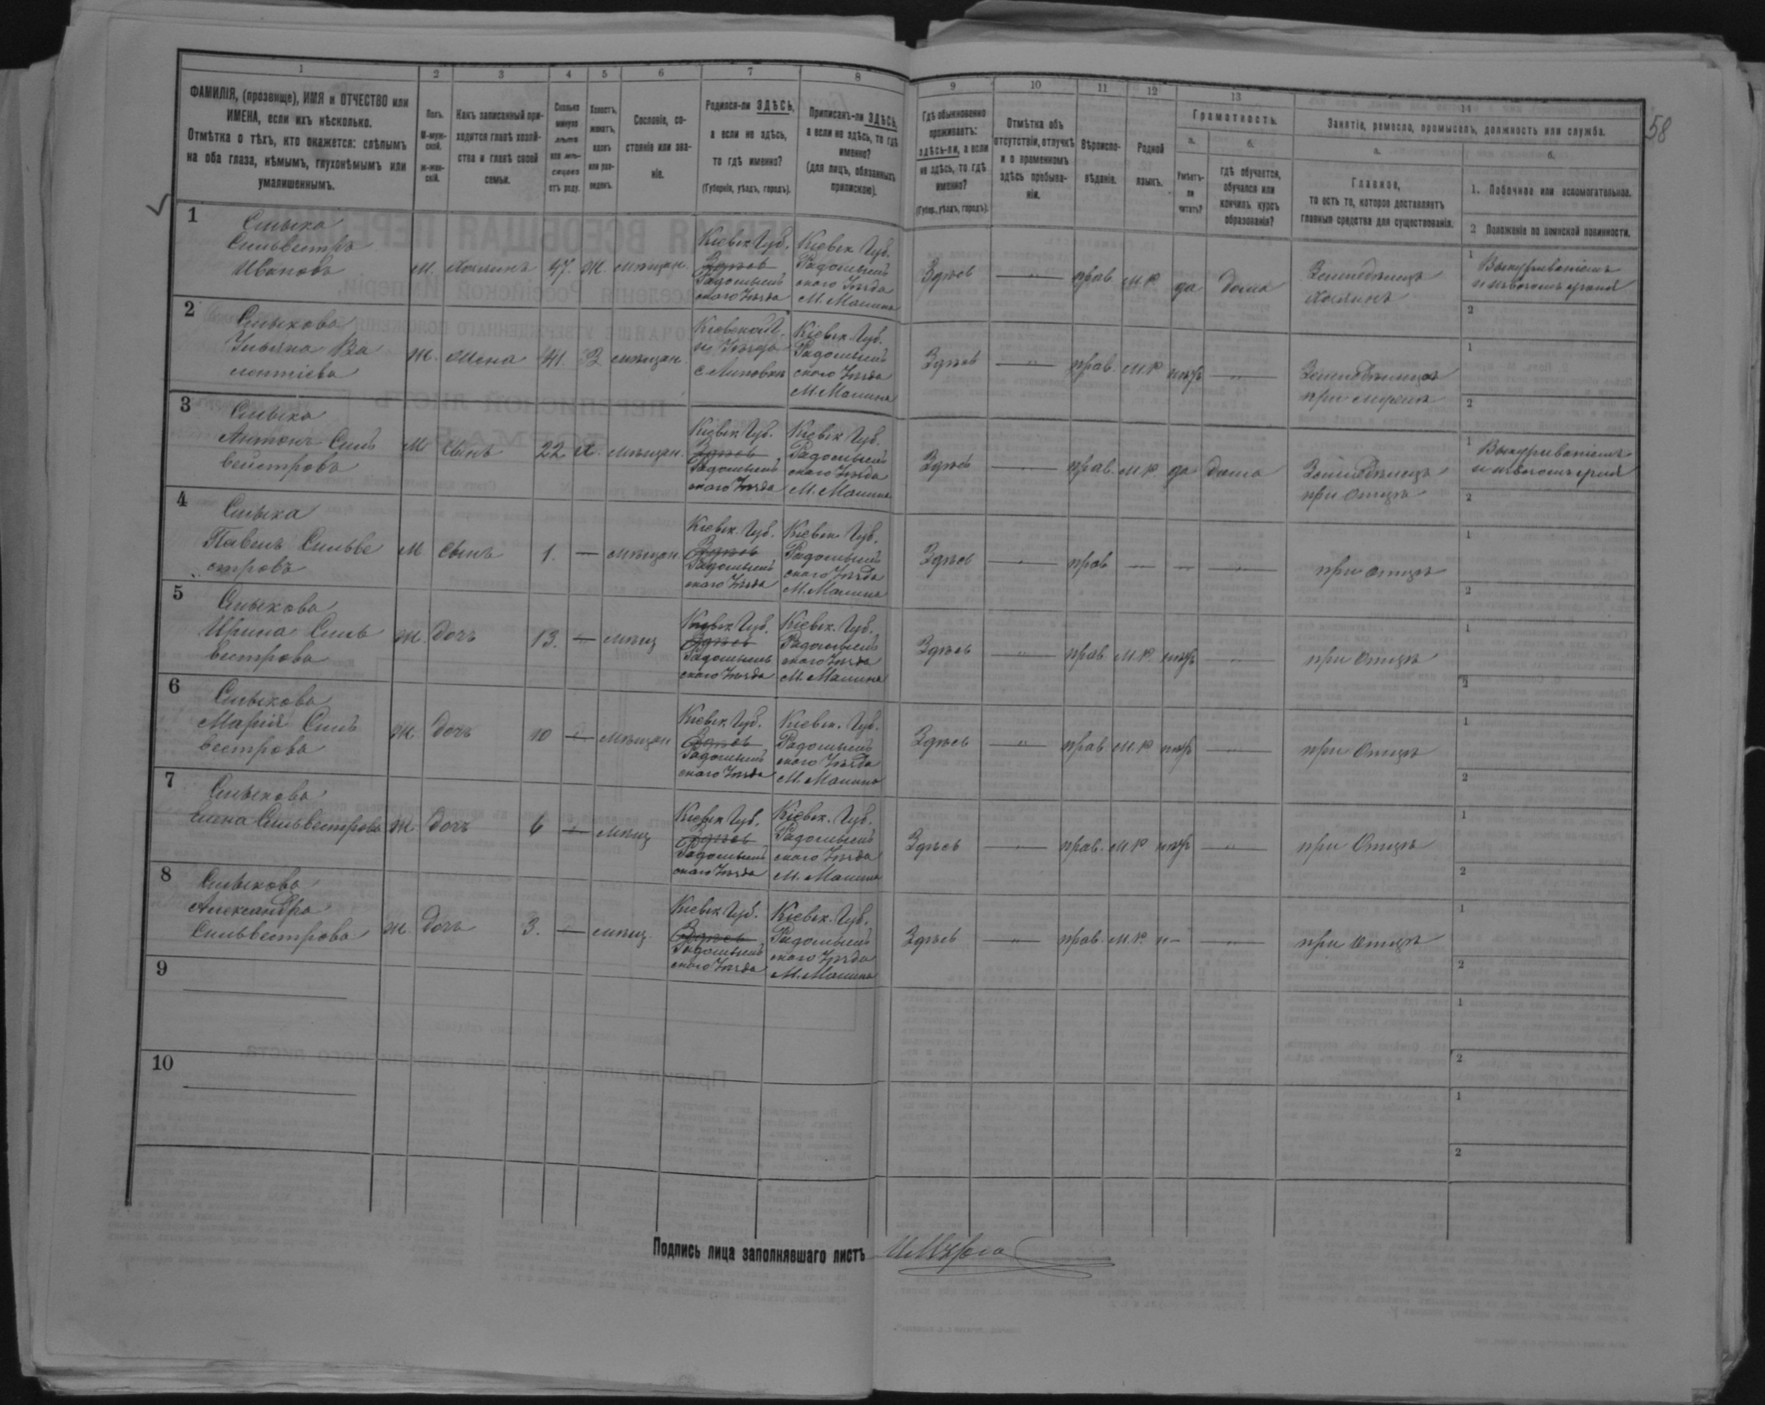 58
1 2 3 4 5 6 7 8 9 10 11 12 13 14
ФАМИЛІЯ, (прозвище), ИМЯ и ОТЧЕСТВО или
ИМЕНА, если ихъ нѣсколько.
Отмѣтка о тѣхъ, кто окажется: слѣпымъ
на оба глаза, нѣмымъ, глухонѣмымъ или
умалишеннымъ.
Полъ.
М-муж-
ской.
Ж-жен-
скій.
Какъ записанный при-
ходится главѣ хозяй-
ства и главѣ своей
семьи.
Сколько
минуло
лѣтъ
или мѣ-
сяцевъ
отъ роду.
Холостъ,
женатъ,
вдовъ
или раз-
веденъ.
Сословіе, со-
стояніе или зва-
ніе.
Родился-ли ЗДѢСЬ,
а если не здѣсь,
то гдѣ именно?
(Губернія, уѣздъ, городъ).
Приписанъ-ли ЗДѢСЬ,
а если не здѣсь, то гдѣ
именно?
(для лицъ, обязанныхъ
припискою).
Гдѣ обыкновенно
проживаетъ:
здѣсь-ли, а если
не здѣсь, то гдѣ
именно?
(Губер., уѣздъ, городъ).
Отмѣтка объ
отсутствіи, отлучкѣ
и о временномъ
здѣсь пребыва-
ніи.
Вѣроиспо-
вѣданіе.
Родной
языкъ.
Грамотность.
а.
Умѣетъ-
ли
читать?
б.
гдѣ обучается,
обучался или
кончилъ курсъ
образованія?
Занятіе, ремесло, промыселъ, должность или служба.
а.
Главное,
то есть то, которое доставляетъ
главныя средства для существованія.
б.
1. Побочное или вспомогательное.
2 Положеніе по воинской повинности.
1
Смыка
Сильвестръ
Ивановъ
М. Хозяинъ 47. Ж мѣщан.
Кіевск Губ.
Здѣсь
Радомысль
скаго Уѣзда
Кіевск Губ.
Радомысль
скаго Уѣзда
М. Малина
Здѣсь — " — прав М.Р да дома
Земледѣлецъ
Хозяинъ
1
2
2
Смыкова
Ульяна
Ж. Жена 41. З мѣщан.
Уѣзда
Кіевск. Губ.
Радомысль
скаго Уѣзда
М. Малина
Здѣсь — " — прав. М.Р — " —
при мужѣ
1
2
3
Смыка
Антонъ Силь
вестровъ
М Сынъ 22 Х. мѣщан.
Кіевск Губ.
Здѣсь
Радомысль
скаго Уѣзда
Кіевск. Губ.
Радомысль
скаго Уѣзда
М. Малина
Здѣсь — " — прав. М.Р. да дома
Земледѣлецъ
при Отцѣ
1
2
4
Смыка
Павелъ Сильве
стровъ
М Сынъ 1. — мѣщан.
Кіевск. Губ.
Здѣсь
Радомысль
скаго Уѣзда
Кіевск. Губ.
Радомысль
скаго Уѣзда
М. Малина
Здѣсь — " — прав — — — " —
при Отцѣ
1
2
5
Смыкова
Ирина Силь
вестрова
Ж. Дочь 13. — мѣщ
Кіевск Губ.
Здѣсь
Радомысль
скаго Уѣзда
Кіевск. Губ.
Радомысль
скаго Уѣзда
М. Малина
Здѣсь — " — прав М.Р — " —
при Отцѣ
1
2
6
Смыкова
Марія Силь
вестрова
Ж. Дочь 10 — мѣщан
Кіевск Губ.
Здѣсь
Радомысль
скаго Уѣзда
Кіевск. Губ.
Радомысль
скаго Уѣзда
М. Малина
Здѣсь — " — прав М.Р — " —
при Отцѣ
1
2
7
Смыкова
Сильвестрова
Ж. Дочь 6 — мѣщ
Кіевск Губ.
Здѣсь
Радомысль
скаго Уѣзда
Кіевск. Губ.
Радомысль
скаго Уѣзда
М. Малина
Здѣсь — " — прав. М.Р — " —
при Отцѣ
1
2
8
Смыкова
Александра
Сильвестрова
Ж. Дочь 3. — мѣщ.
Кіевск Губ.
Здѣсь
Радомысль
скаго Уѣзда
Кіевск. Губ.
Радомысль
скаго Уѣзда
М. Малина
Здѣсь — " — прав. М.Р. — " —
при Отцѣ
1
2
9
1
2
10
1
2
Подпись лица заполнявшаго листъ